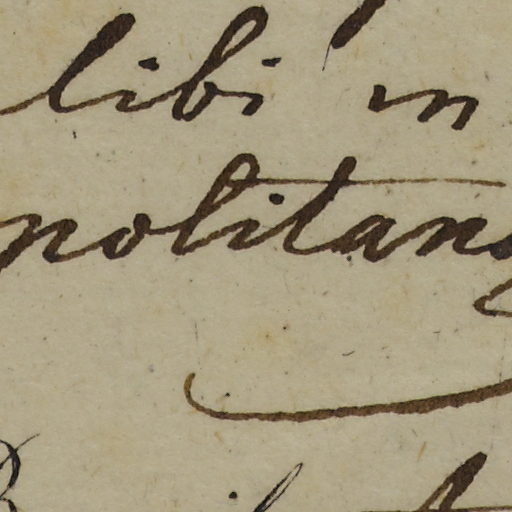 libi in
politano